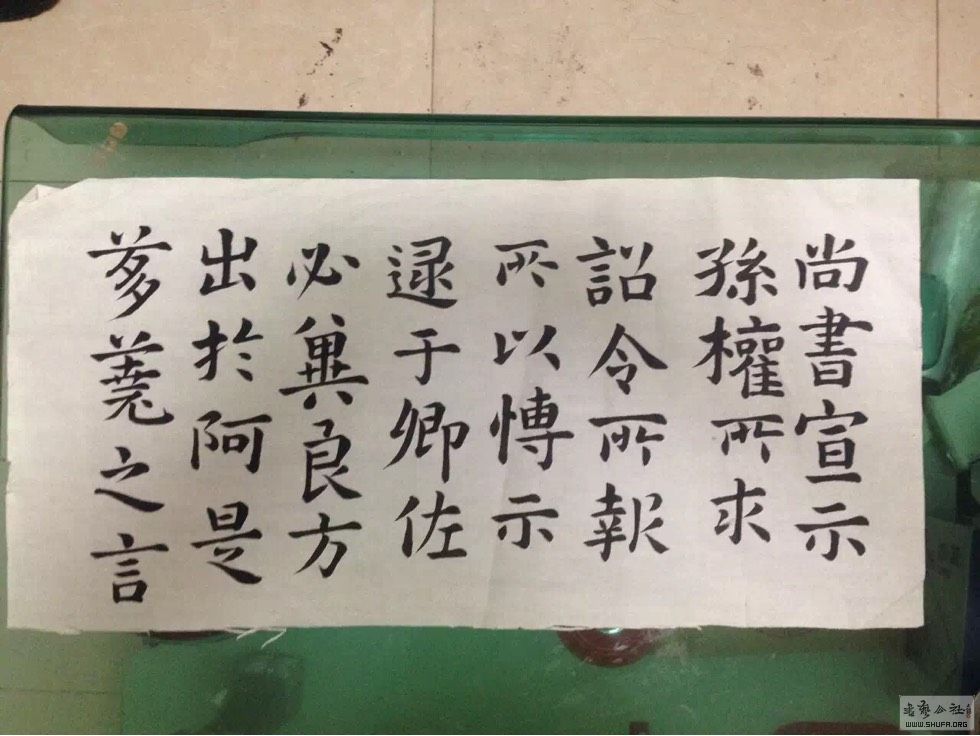 尚書宣示
孫權所求
詔令所報
所以博示
逯于卿佐
必冀良方
出於阿是
芻蕘之言
WWW.SHUFA.ORG